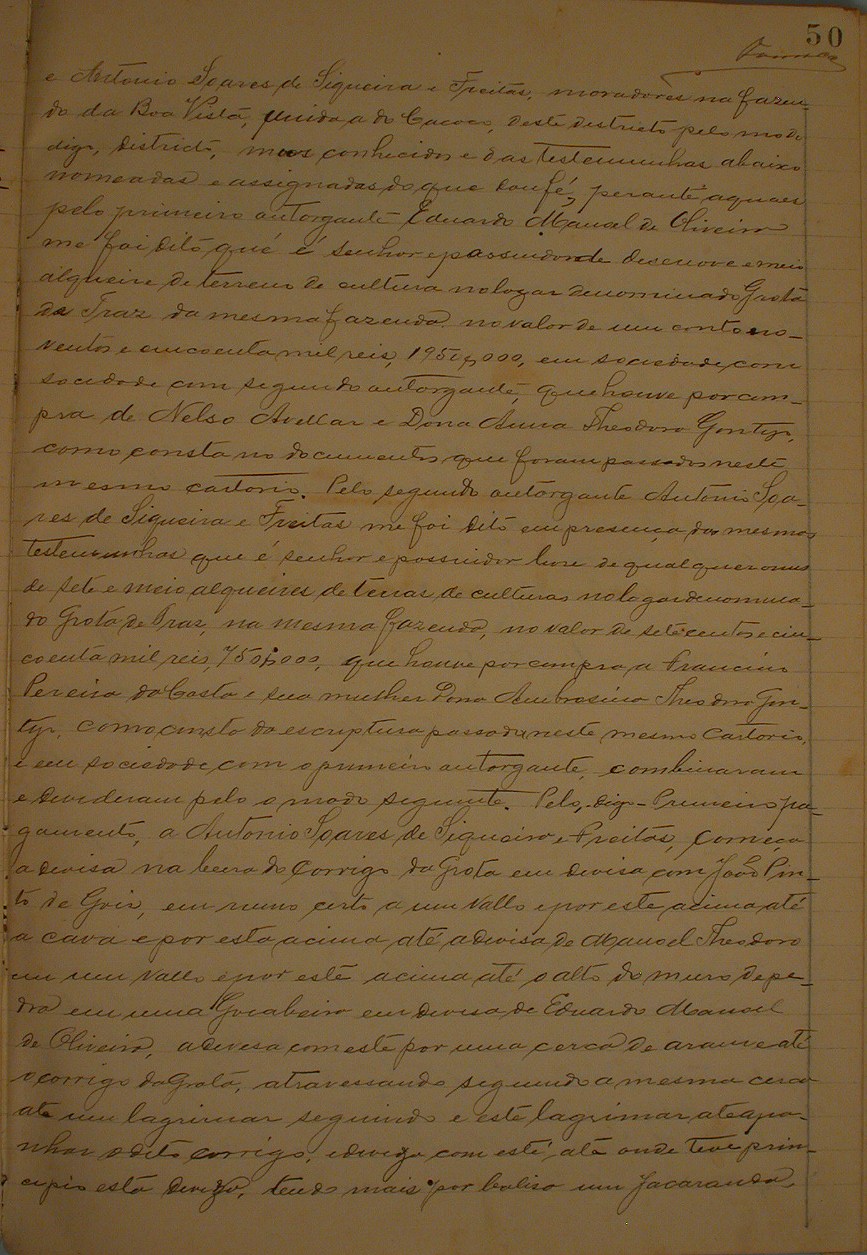 50
e Antonio Soares de Siqueira e Freitas, moradores na fazen-
do da Boa Vista, unida a do Cacoco, deste districto pelo modo
digo, districto, meus conhecidos e das testemunhas abaixo
nomeadas e assignadas do que dou fé, perante aquaes
pelo primeiro outorgante Eduardo Manoel de Oliveira
me foi dito que é senhor epossuidor de desenove emeio
alqueire de terreno de cultura nologar denominado Grota
de Traz da mesma fazenda no valor de um conto no-
ventos e cincoenta mil reis, 1950$000, em sociedade com
sociedade com segundo outorgante, que houve por com-
pra de Nelso Avellar e Dona Anna Theodoro Gontijo,
como consta no documentos que foram passados neste
mesmo cartorio. Pelo segundo outorgante Antonio Soa-
res de Siqueira e Freitas me foi dito em presença das mesmas
testemunhas que é senhor e possuidor livre de qualquer onus
de sete e meio alqueires de terras de culturas nologar denomina-
do Grota de Traz, na mesma fazenda, no valor de setecentos e cin-
coenta mil reis, 750$000, que houve por compra a Francisco
Pereira da Costa e sua mulher Dona Ambrosina Theodoro Gon-
tijo, como consta da escriptura passada neste mesmo Cartorio,
e em sociedade com o primeiro outorgante, combinaram
e devideram pelo o modo seguinte. Pelo, digo - Primeiro pa-
gamento, a Antonio Soares de Siqueira e Freitas, começa
a devisa na beira do Corrigo da Grota em devisa com João Pin-
to de Gois, em rumo certo a um Vallo e por este acima até
a cava e por esta acima até a devisa de Manoel Theodoro
em um Vallo e por este acima até o alto do muro de pe-
dra em uma Goiabeira em devisa de Eduardo Manoel
de Oliveira, a devesa com este por uma cerca de arame até
o corrigo da Grota, atravessando segundo a mesma cerca
até um lagrimar seguindo e este lagrimar ate apa-
nhar o dito corrigo, e devega com este, até onde teve prin-
cipio esta devega, tendo mais por baliso um Jacaranda,